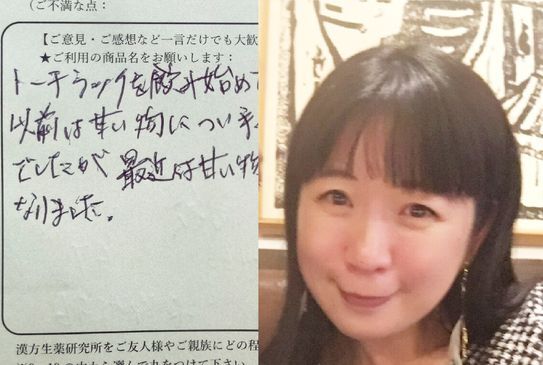 （ご不満な点：
【ご意見・ご感想など一言だけでも大歓
★ご利用の商品名をお願いします：
トーチラックを飲み始めて
以前は甘い物につい手
でしたが最近は甘い物
なりました。
漢方生薬研究所をご友人様やご親族にどの程
の中から選んで丸をつけて下さい